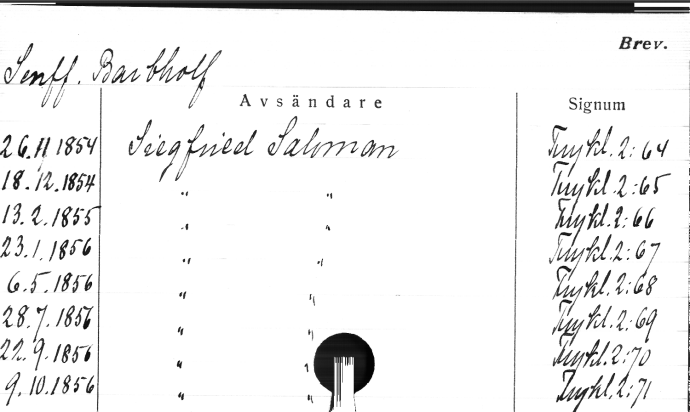 Brev.
Senff. Bartholf
Avsändare Signum
26.11.1854 Siegfried Saloman Trykl.2:64
18.12.1854 " " Trykl.2:65
13.2.1855 " " Trykl.2:66
23.1.1856 " " Trykl.2:67
6.5.1856 " " Trykl.2:68
28.7.1856 " " Trykl.2:69
22.9.1856 " " Trykl.2:70
9.10.1856 " " Trykl.2:71